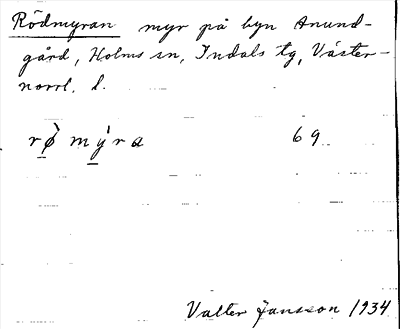 Rödmyran myr på byn Anund-
gård, Holms sn, Indals tg, Väster-
norrl. l.
rø̀ mỳra 69
Valter Jansson 1934